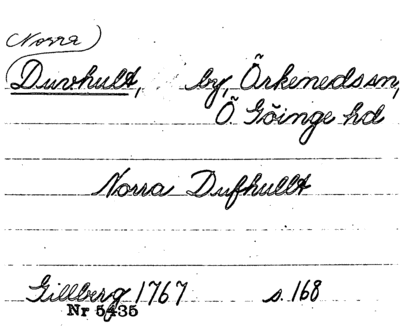 Norra
Duvhult, by, Örkeneds sn,
Ö Göinge hd
Norra Dufhullt
Gillberg 1767 s. 168
Nr 5435